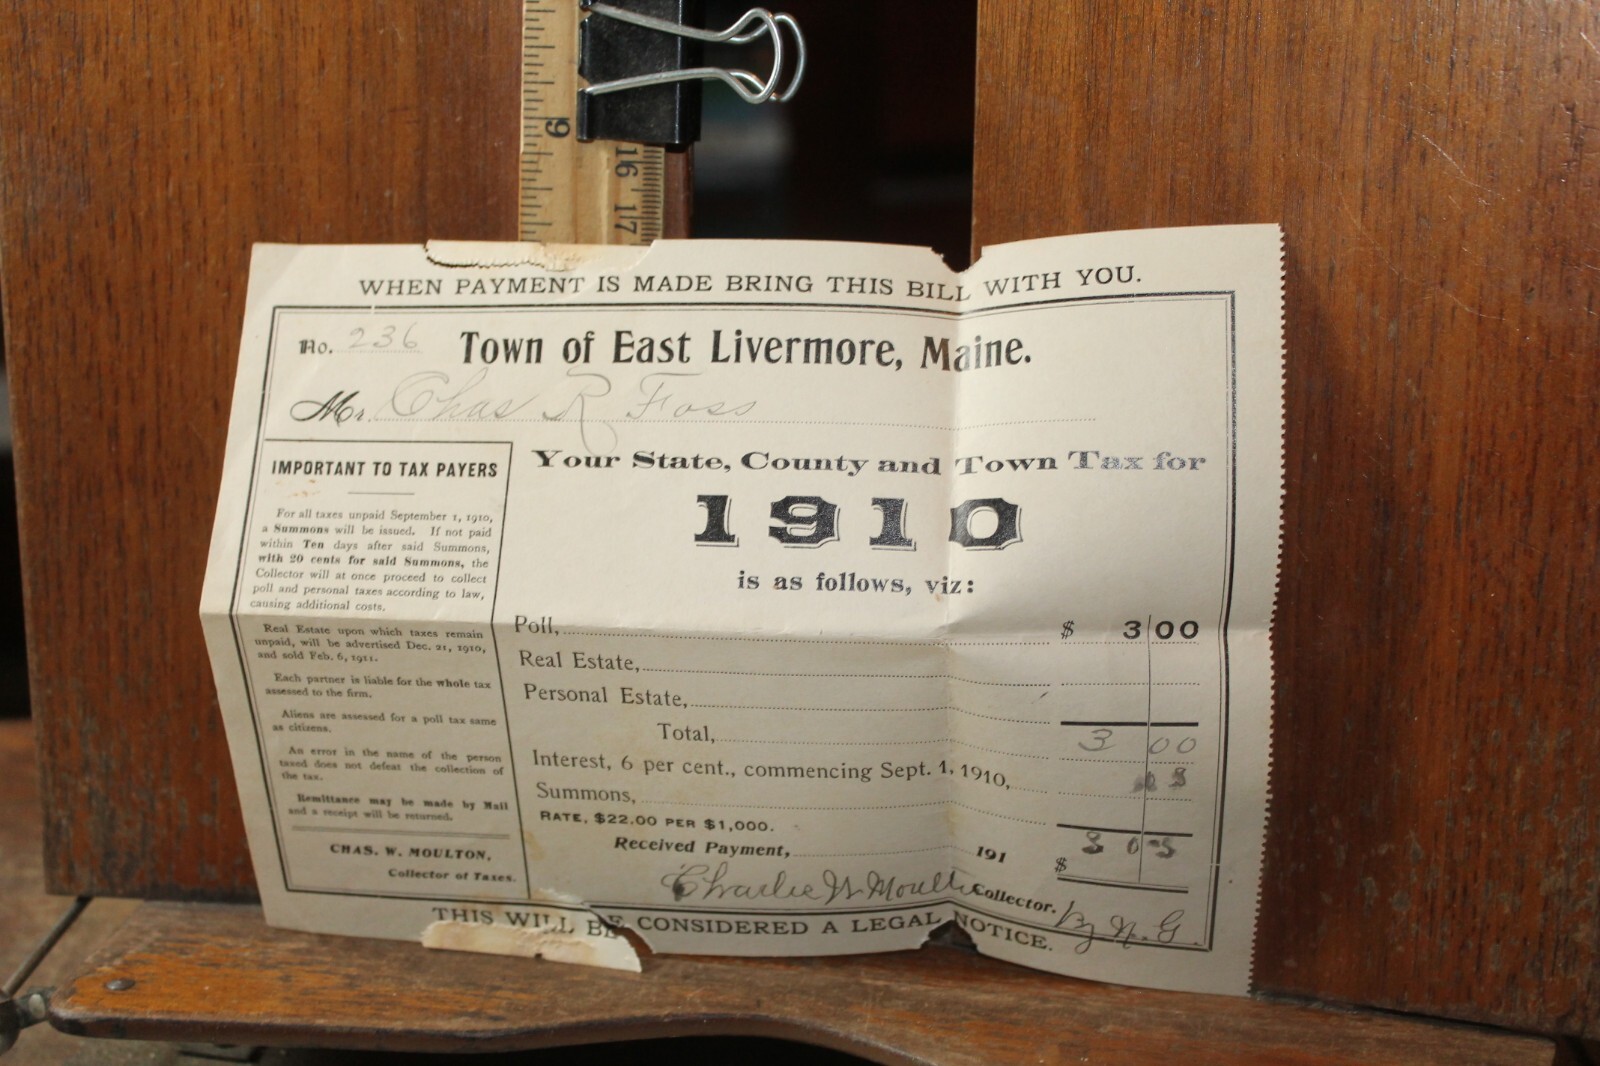 9
16
17
WHEN PAYMENT IS MADE BRING THIS BILL WITH YOU.
No. 236 Town of East Livermore, Maine.
Mr. Chas R Foss
IMPORTANT TO TAX PAYERS
For all taxes unpaid September 1, 1910,
a Summons will be issued. If not paid
within Ten days after said Summons,
with 20 cents for said Summons, the
Collector will at once proceed to collect
poll and personal taxes according to law,
causing additional costs.
Real Estate upon which taxes remain
unpaid, will be advertised Dec. 21, 1910,
and sold Feb. 6, 1911.
Each partner is liable for the whole tax
assessed to the firm.
Aliens are assessed for a poll tax same
as citizens.
An error in the name of the person
taxed does not defeat the collection of
the tax.
Remittance may be made by Mail
and a receipt will be returned.
CHAS. W. MOULTON,
Collector of Taxes.
Your State, County and Town Tax for
1910
is as follows, viz:
Poll, $ 3 00
Real Estate,
Personal Estate,
Total, 3 00
Interest, 6 per cent., commencing Sept. 1, 1910, 5
Summons,
RATE, $22.00 PER $1,000.
Received Payment, 191 $ 3 05
Charlie W Moulton Collector. by N. G.
THIS WILL BE CONSIDERED A LEGAL NOTICE.